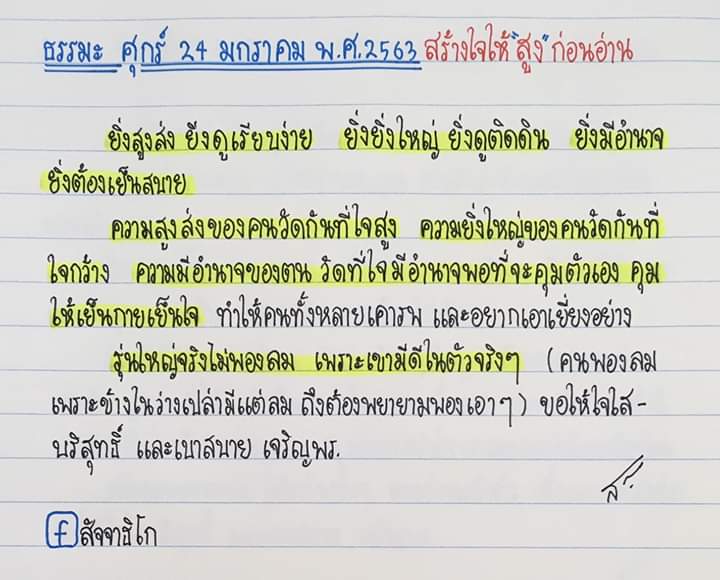 ธรรมะ ศุกร์ 24 มกราคม พ.ศ.2563 สร้างใจให้"สูง"ก่อนอ่าน
ยิ่งสูงส่ง ยิ่งดูเรียบง่าย ยิ่งยิ่งใหญ่ ยิ่งดูติดดิน ยิ่งมีอำนาจ
ยิ่งต้องเย็นสบาย
ความสูงส่งของคนวัดกันที่ใจสูง ความยิ่งใหญ่ของคนวัดกันที่
ใจกว้าง ความมีอำนาจของตน วัดที่ใจมีอำนาจพอที่จะคุมตัวเอง คุม
ให้เย็นกายเย็นใจ ทำให้คนทั้งหลายเคารพ และอยากเอาเยี่ยงอย่าง
รุ่นใหญ่จริงไม่พองลม เพราะเขามีดีในตัวจริงๆ (คนพองลม
เพราะข้างในว่างเปล่ามีแต่ลม ถึงต้องพยายามพองเอาๆ) ขอให้ใจใส-
บริสุทธิ์ และเบาสบาย เจริญพร.
f สัจจาธิโก